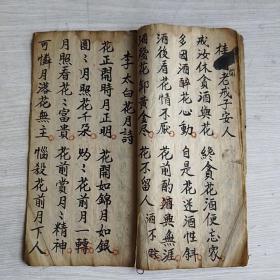 桂老戒子安人
戒汝休貪酒與花
終貪花酒便忘家
多因酒醉花心動
自是花迷酒性斜
酒後看花情不厭
花前酌酒興無涯
酒殘花卸黃金尽
花不留人酒不賒
李太白花月詩
花正開時月正明
花開如錦月如銀
圓〻月照花千朶
灼〻花前月一轉
月照看花〻富貴
花前賞月〻精神
可憐月落花無主
惱殺花前月下人